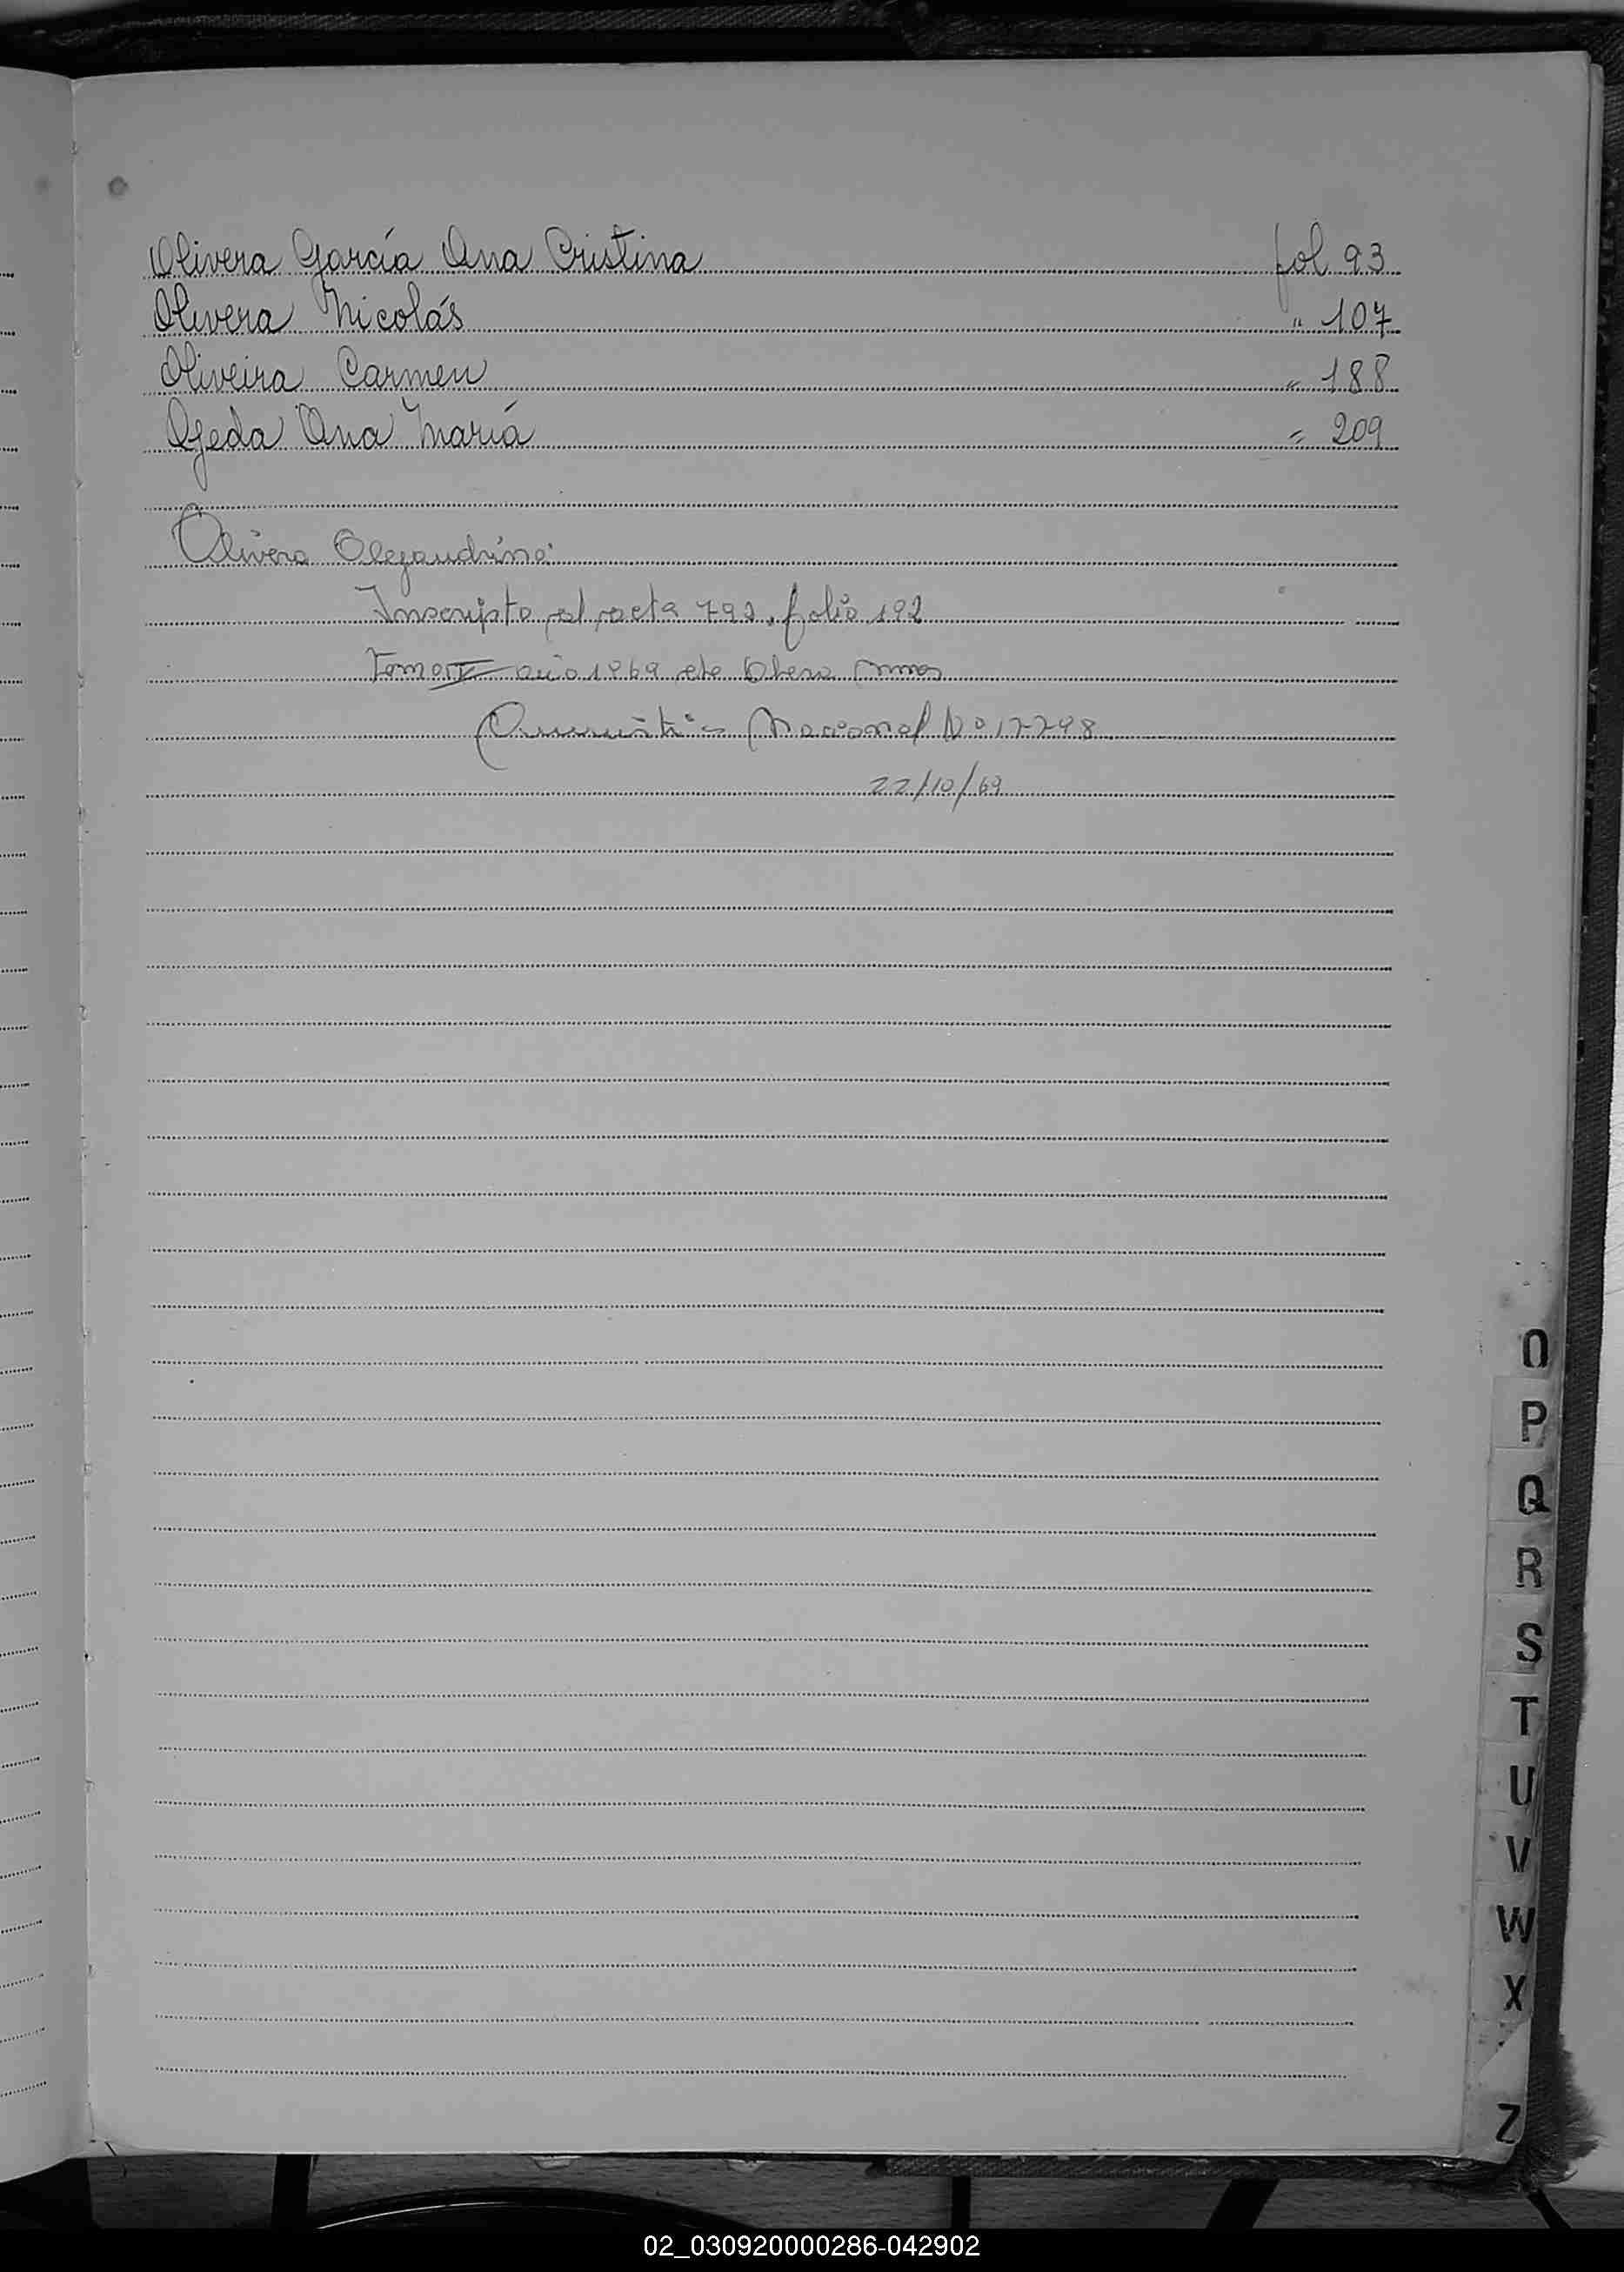 Olivera García Ana Cristina fol 93
Olivera Nicolás " 107
Oliveira Carmen " 188
Ojeda Ana María = 209
Olivera Alejandrino
Inscripto al acta 792 folio 192
Tomo IV año 1969 de Obera Mnes
Amnistia Nacional Nº 17798
22/10/69
O
P
Q
R
S
T
U
V
W
X
Z
02_030920000286-042902